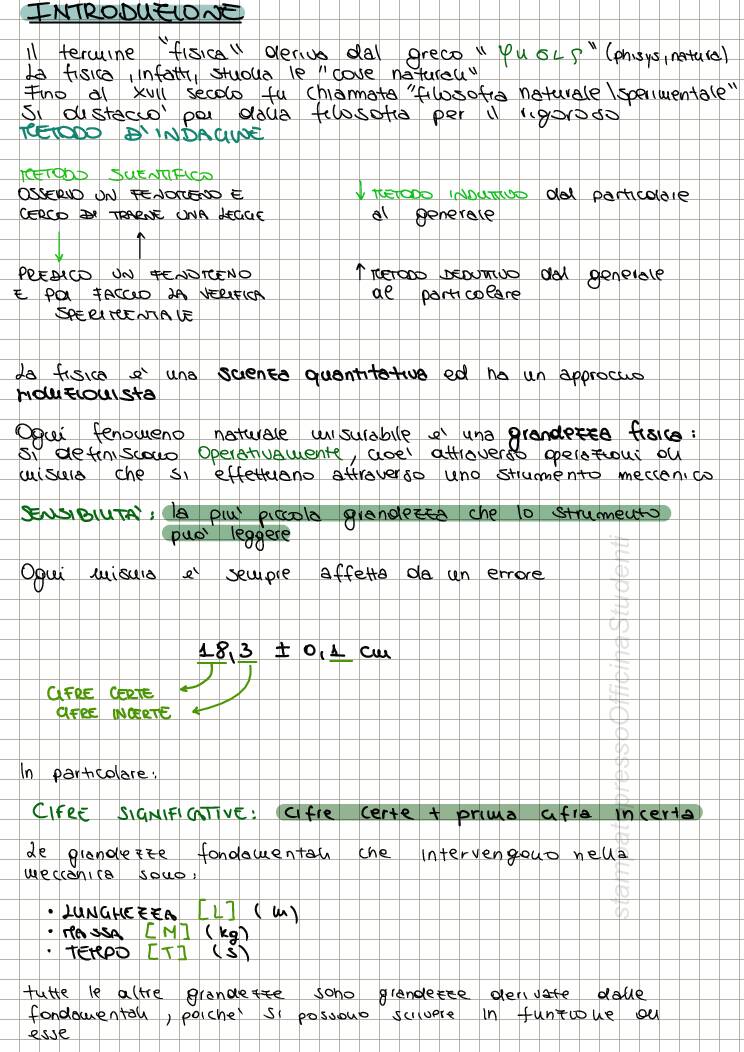 INTRODUZIONE
Il termine "fisica" deriva dal greco "φυσις" (phisys, natura)
La fisica, infatti, studia le "cose naturali"
Fino al XVII secolo fu chiamata "filosofia naturale\sperimentale"
Si distaccò poi dalla filosofia per il rigoroso
METODO D'INDAGINE
METODO SCIENTIFICO
OSSERVO UN FENOMENO E
CERCO DI TRARNE UNA LEGGE
↓ METODO INDUTTIVO dal particolare
al generale
PREDICO UN FENOMENO
E POI FACCIO LA VERIFICA
SPERIMENTALE
↑ METODO DEDUTTIVO dal generale
al particolare
La fisica è una scienza quantitativa ed ha un approccio
riduzionista
Ogni fenomeno naturale misurabile è una grandezza fisica:
si definiscono Operativamente, cioè attraverso operazioni di
misura che si effettuano attraverso uno strumento meccanico
SENSIBILITA': la più piccola grandezza che lo strumento
può leggere
Ogni misura è sempre affetta da un errore
18,3 ± 0,1 cm
CIFRE CERTE
CIFRE INCERTE
In particolare:
CIFRE SIGNIFICATIVE: cifre certe + prima cifra incerta
Le grandezze fondamentali che intervengono nella
meccanica sono:
• LUNGHEZZA [L] (m)
• MASSA [M] (kg)
• TEMPO [T] (s)
tutte le altre grandezze sono grandezze derivate dalle
fondamentali, poiché si possono scrivere in funzione di
esse
stampatopressoOfficinaStudenti